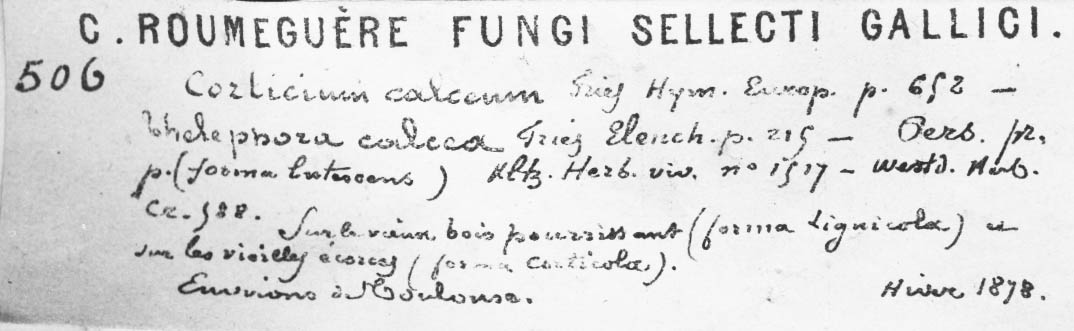 C. ROUMEGUÈRE FUNGI SELLECTI GALLICI.
506
Corticium calceum Fries Hym. Europ. p. 652 —
Thelephora calcea Fries Elench. p. 215 — Pers. pr.
p. (forma lutescens) Kltz. Herb. viv. nº 1517 — Westd. Herb.
Cr. 588. Sur le vieux bois pourrissant (forma Lignicola) et
sur les vieilles écorces (forma corticola).
Environs de Toulouse. Hiver 1878.